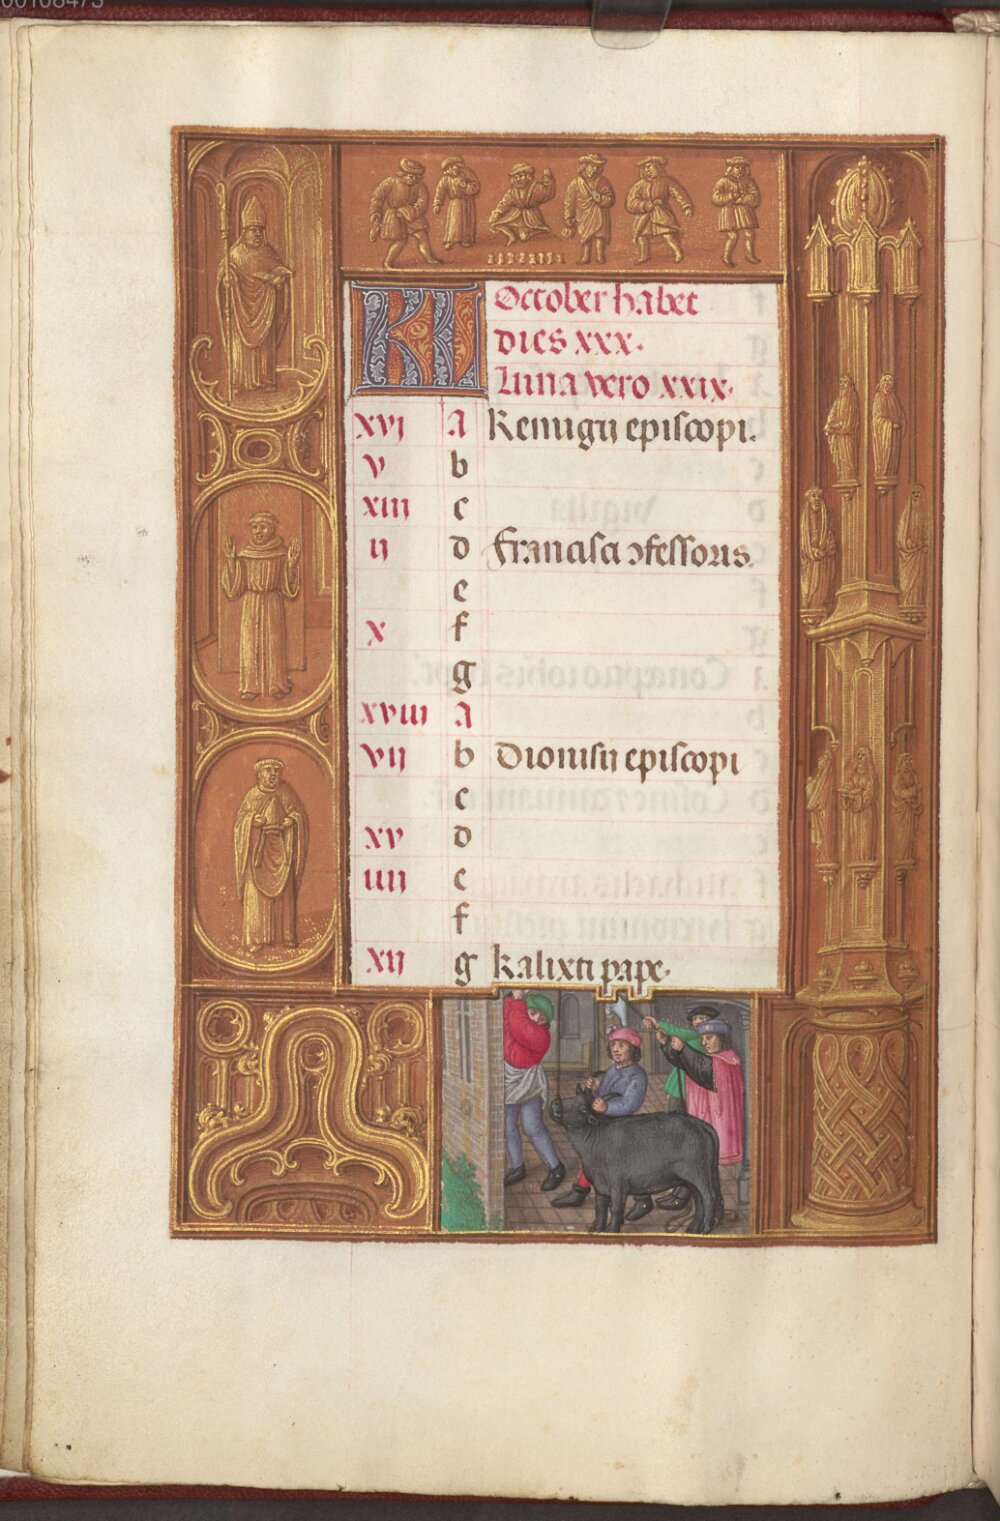 00108473
KL October habet
dies xxx.
Luna vero xxix.
xvj A Remigij episcopi.
v b
xiii c
ii d Francisci ɔfessoris.
e
x f
g
xviii A
vij b Dionisij episcopi
c
xv d
iiij e
f
xij g Kalixti pape.